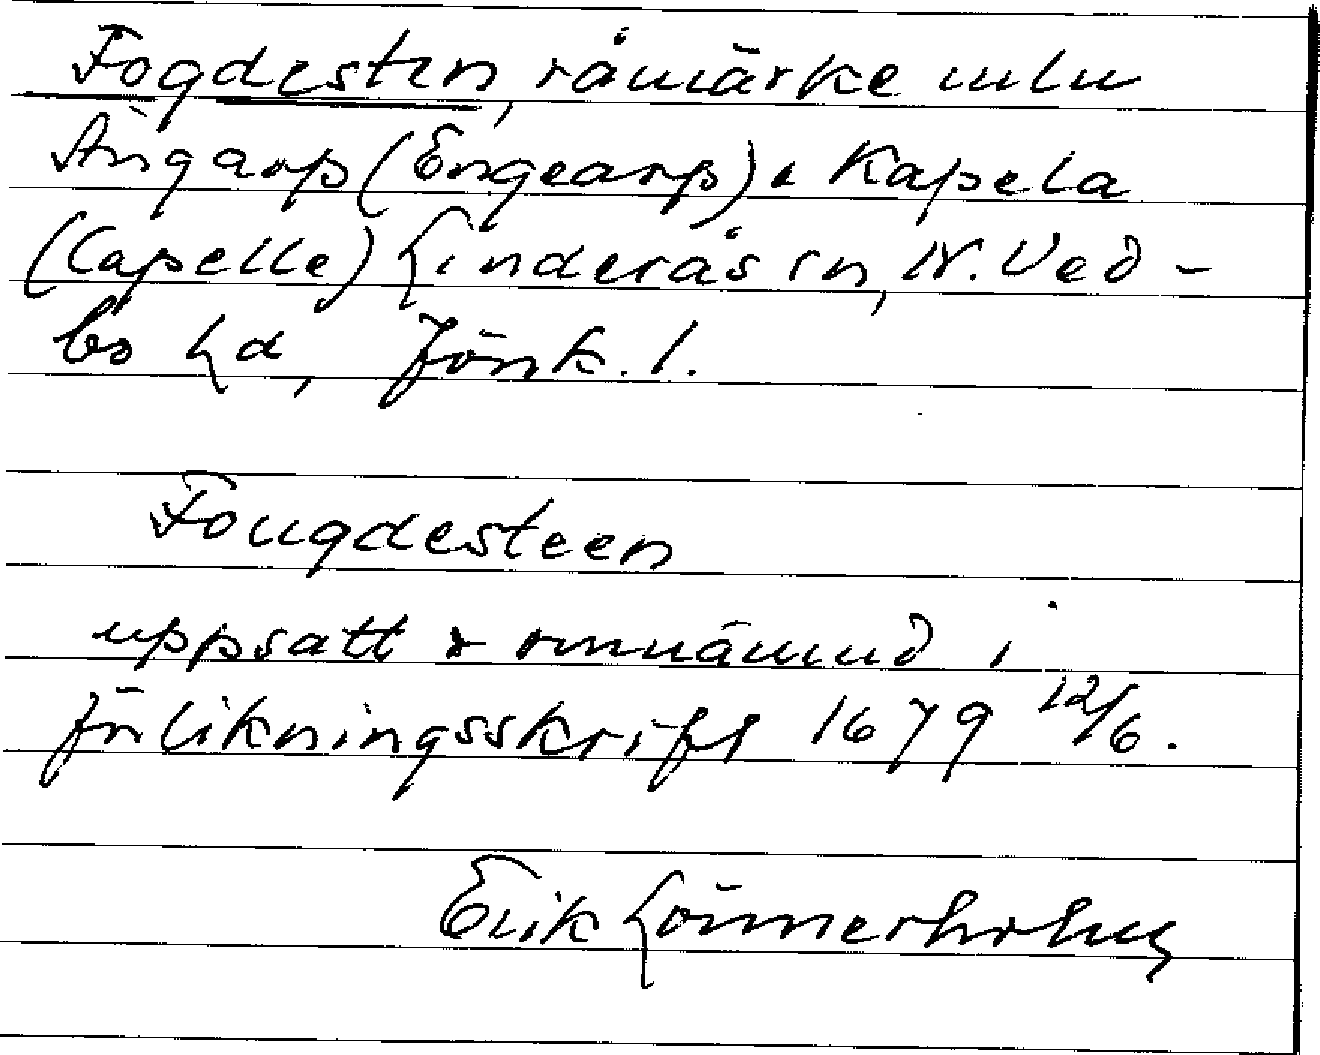 Fogdesten, råmärke mlm
Ängarp (Engearp) & Kapela
(Capelle) Linderås sn, N. Ved-
bo hd, Jönk. l.
Fougdesteen
uppsatt & omnämnd i
förlikningsskrift 1679 12/6.
Erik Lönnerholm